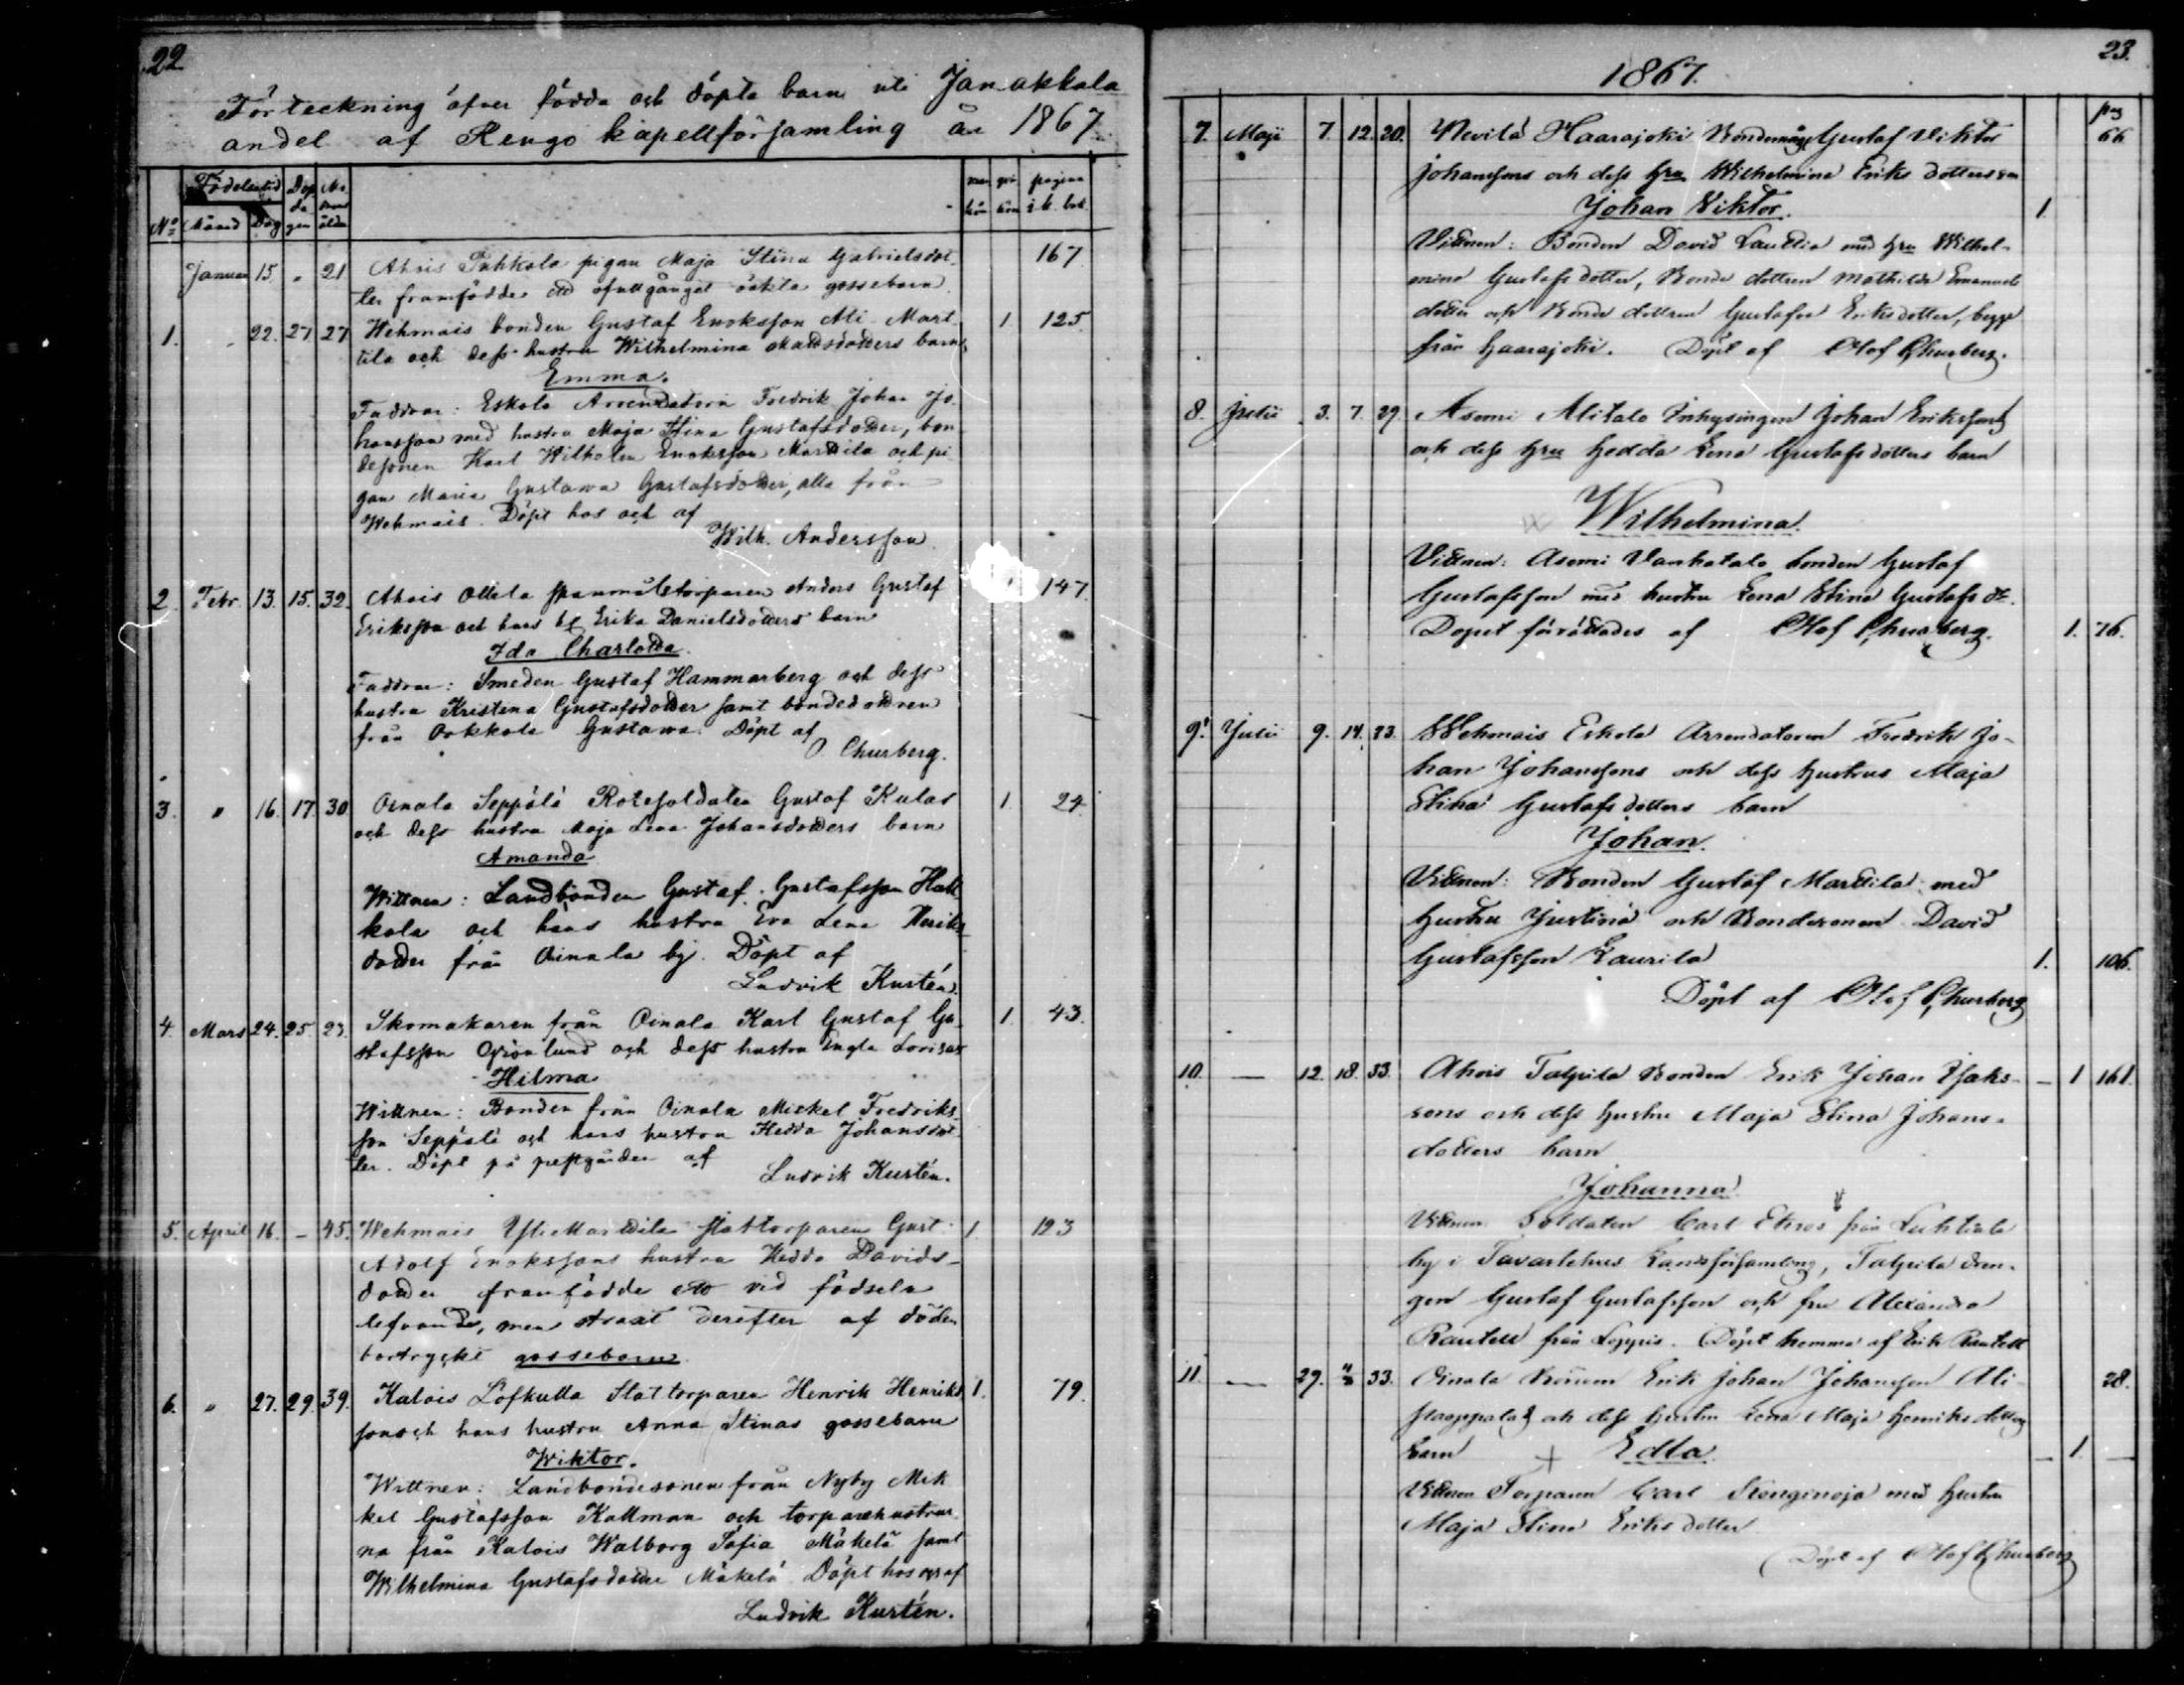 22
Förteckning öfver födda och döpta barn uti Janakkala
andel af Rengo kapellförsamling år 1867.
No Födelsetid Månad Dag Dop da gen Mo drens ålder man kön qvin kön pagina i k. bok.
Januar 15 " 21 Ahois Puhkala pigan Maja Stina Gabrielsdot 167
ter framfödde ett ofullgånget oäkta gossebarn
1. " 22. 27 27 Wehmais bonden Gustaf Enoksson Ali Mart 1 125
tila och dess hustru Wilhelmina Mattsdotters barn
Emma.
Faddrar: Eskola Arrendatorn Fredrik Johan Jo
hansson med hustru Maja Stina Gustafsdotter, bon
desonen Karl Wilhelm Enoksson Marttila och pi
gan Maria Gustawa Gustafsdotter, alla från
Wehmais. Döpt hos och af
Wilh. Andersson
2. Febr. 13. 15. 32. Ahois Ollila spanmålstorparen Anders Gustaf 147
Eriksson och hans h. Erika Danielsdotters barn
Ida Charlotta.
Faddrar: Smeden Gustaf Hammarberg och dess
hustru Kristina Gustafsdotter samt bondedottren
från Gustawa. Döpt af
O Churberg.
3. " 16. 17. 30 Oinala Seppälä Rotesoldaten Gustaf Kulas 1. 24
och dess hustru Maja Lena Johansdotters barn
Amanda
Wittnen: Landbonden Gustaf Gustafsson Hak
kola och hans hustru Eva Lena Henriks
dotter från Oinala by. Döpt af
Ludvik Kustén.
4. Mars 24. 25. 23. Skomakaren från Oinala Karl Gustaf Gu 1. 43.
stafsson Grönlund och dess hustru Engla Lovisas
Hilma
Wittnen: Bonden från Oinala Mickel Fredriks
son Seppälä och hans hustru Hedda Johansdot
ter. Döpt på prestgården af
Ludvik Kustén.
5. April 16. - 45. Wehmais Yli Marttila stattorparen Gust. 1. 123
Adolf Enokssons hustru Hedda Davids-
dotter framfödde ett vid födseln
lefvande, men straxt derefter af döden
bortryckt gossebarn.
6. " 27. 29. 39. Kalois Löfkulla Stattorparen Henrik Henriks 1. 79.
sons och hans hustru Anna Stinas gossebarn
Wiktor.
Wittnen: Landbondesonen från Nyby Mik
kel Gustafsson Kallman och torparehustrur
na från Kalois Walborg Sofia Mäkelä samt
Wilhelmina Gustafsdotter Mäkelä. Döpt hos och af
Ludvik Kustén.
23.
1867.
pag
7. Maji 7. 12. 20. Nevilä Haarajoki Bondemåg Gustaf Viktor 66
Johanssons och dess hru Wilhelmina Eriks dotters son
Johan Viktor. 1
Vittnen: Bonden David med hru Wilhel-
mina Gustafs dotter, Bonde dottren Mathilda Emanuels
dotter och Bonde dottren Gustafva Eriksdotter, begge
från Haarajoki. Döpt af Olof Churberg.
8. Julii 3. 7. 29. Asemi Alitalo Inhysingen Johan Erikssons
och dess hru Hedda Lena Gustafs dotters barn
Wilhelmina.
Vittnen: Asemi Vanhatalo bonden Gustaf
Gustafsson med hustru Lena Stina Gustafs dr.
Dopet förrättades af Olof Churberg. 1. 76.
9. Julii 9. 14. 23. Wehmais Eskola Arrendatoren Fredrik Jo-
han Johanssons och dess hustrus Maja
Stina Gustafs dotters barn
Johan.
Vittnen: Bonden Gustaf Marttila med
hustru Justina och Bondesonen David
Gustafsson Laurila 1. 106.
Döpt af Olof Churberg
10. — 12. 18. 33. Ahois Talpila Bonden Erik Johan Isaks- — 1 161.
sons och dess hustru Maja Stina Johans-
dotters barn
Johanna
Vittnen Soldaten Carl Ehros från Luhtiala
by i Tavastehus Landsförsamling, Talpila dren-
gen Gustaf Gustafsson och fru Alexandra
Rantell från Loppis. Döpt hemma af Erik Rantell
11. — 29. 33. Oinala Erik Johan Johansson Ali 28.
och dess hustru Lena Maja Henriks dotters
barn + Edla. — 1. —
Vittnen Torparen Carl med hustru
Maja Stina Eriks dotter
Döpt af Olof Churberg